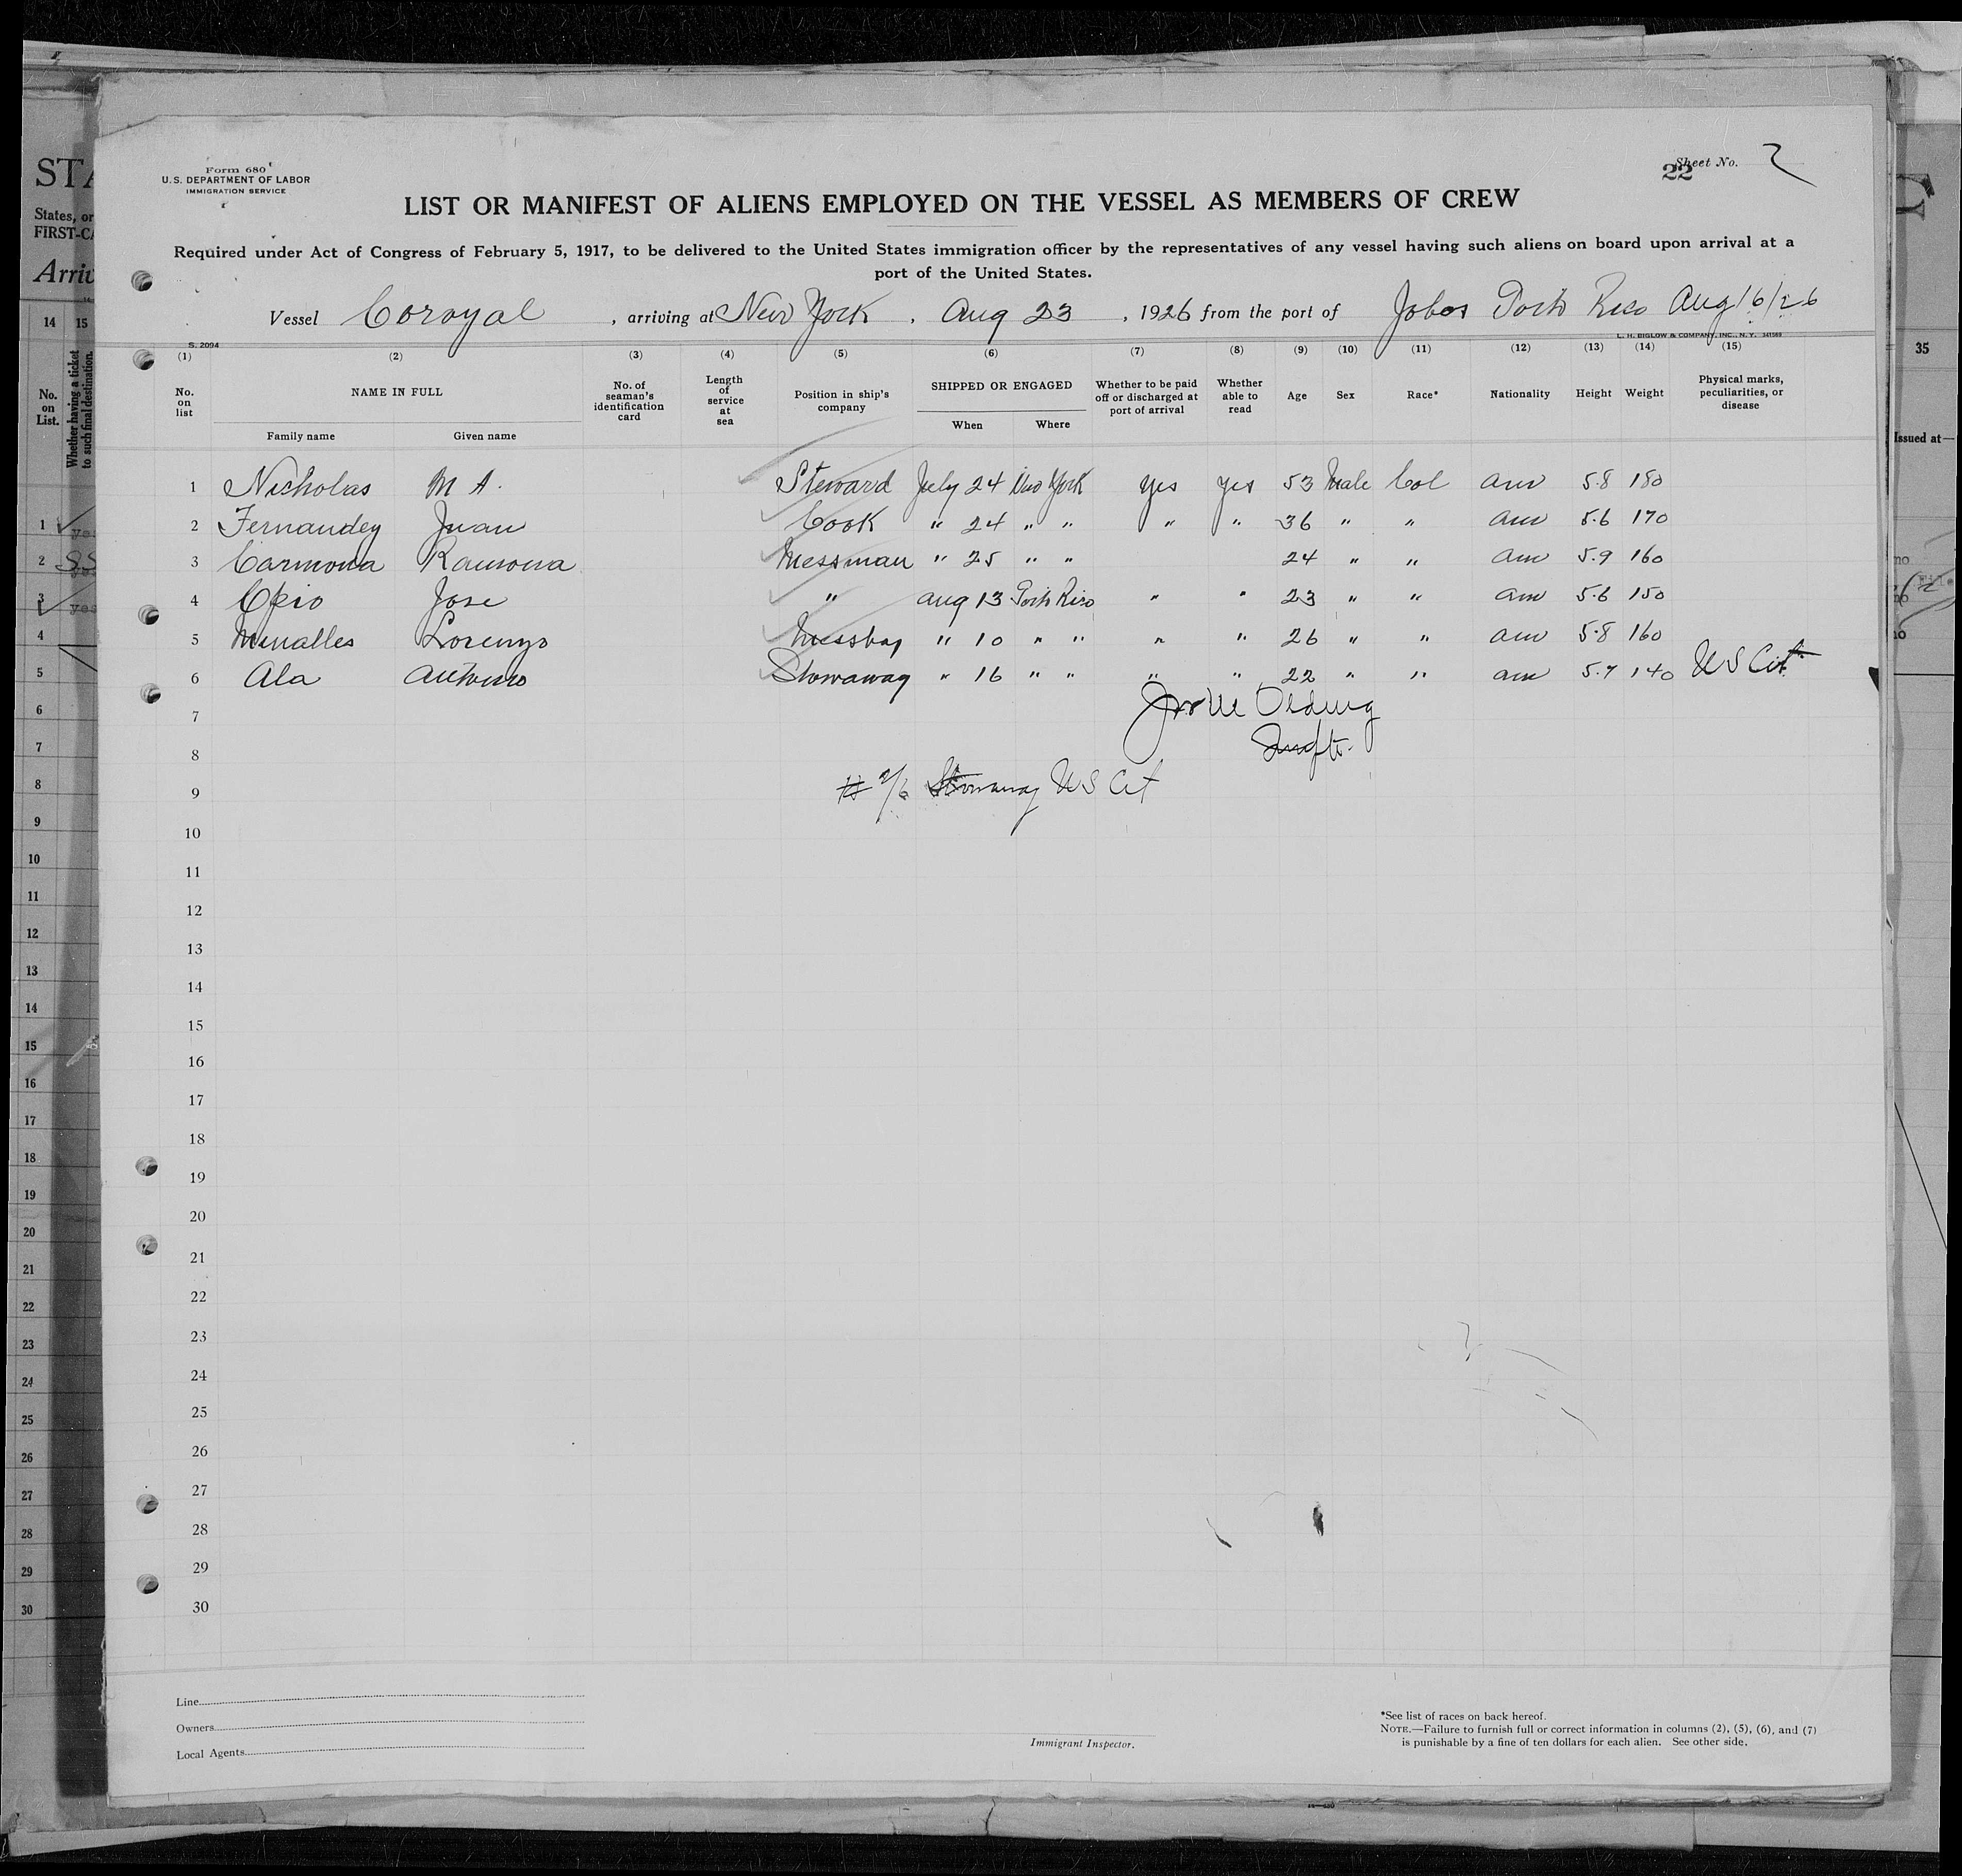 Form 680
U.S. DEPARTMENT OF LABOR
IMMIGRATION SERVICE
22
Sheet No. 2
LIST OR MANIFEST OF ALIENS EMPLOYED ON THE VESSEL AS MEMBERS OF CREW
Required under Act of Congress of February 5, 1917, to be delivered to the United States immigration officer by the representatives of any vessel having such aliens on board upon arrival at a
port of the United States.
Vessel Coroyal , arriving at New York , Aug 23 , 1926 from the port of Jobos Porto Rico Aug 16/26
S. 2094
L. H. BIGLOW & COMPANY, INC., N. Y. 341569
(1) (2) (3) (4) (5) (6) (7) (8) (9) (10) (11) (12) (13) (14) (15)
No. on list NAME IN FULL Family name Given name No. of seaman's identification card Length of service at sea Position in ship's company SHIPPED OR ENGAGED When Where Whether to be paid off or discharged at port of arrival Whether able to read Age Sex Race* Nationality Height Weight Physical marks, peculiarities, or disease
1 Nicholas M A. Steward July 24 New York yes yes 53 Male Col am 5.8 180
2 Fernandez Juan Cook " 24 " " " " 36 " " am 5.6 170
3 Carmona Ramona Messman " 25 " " 24 " " am 5.9 160
4 Opio Jose " aug 13 Porto Rico " " 23 " " am 5.6 150
5 Lorenzo Messboy " 10 " " " " 26 " " am 5.8 160
6 Ala Antonio Stowaway " 16 " " " " 22 " " am 5.7 140 US Cit
7
8
9 # Stowaway US Cit
10
11
12
13
14
15
16
17
18
19
20
21
22
23
24
25
26
27
28
29
30
Line
Owners
Local Agents
Immigrant Inspector.
*See list of races on back hereof.
NOTE.—Failure to furnish full or correct information in columns (2), (5), (6), and (7)
is punishable by a fine of ten dollars for each alien. See other side.
STA
States, or
FIRST-CA
Arriv
14 15
No. on List.
Whether having a ticket to such final destination.
1
2
3
4
5
6
7
8
9
10
11
12
13
14
15
16
17
18
19
20
21
22
23
24
25
26
27
28
29
30
35
Issued at—
no